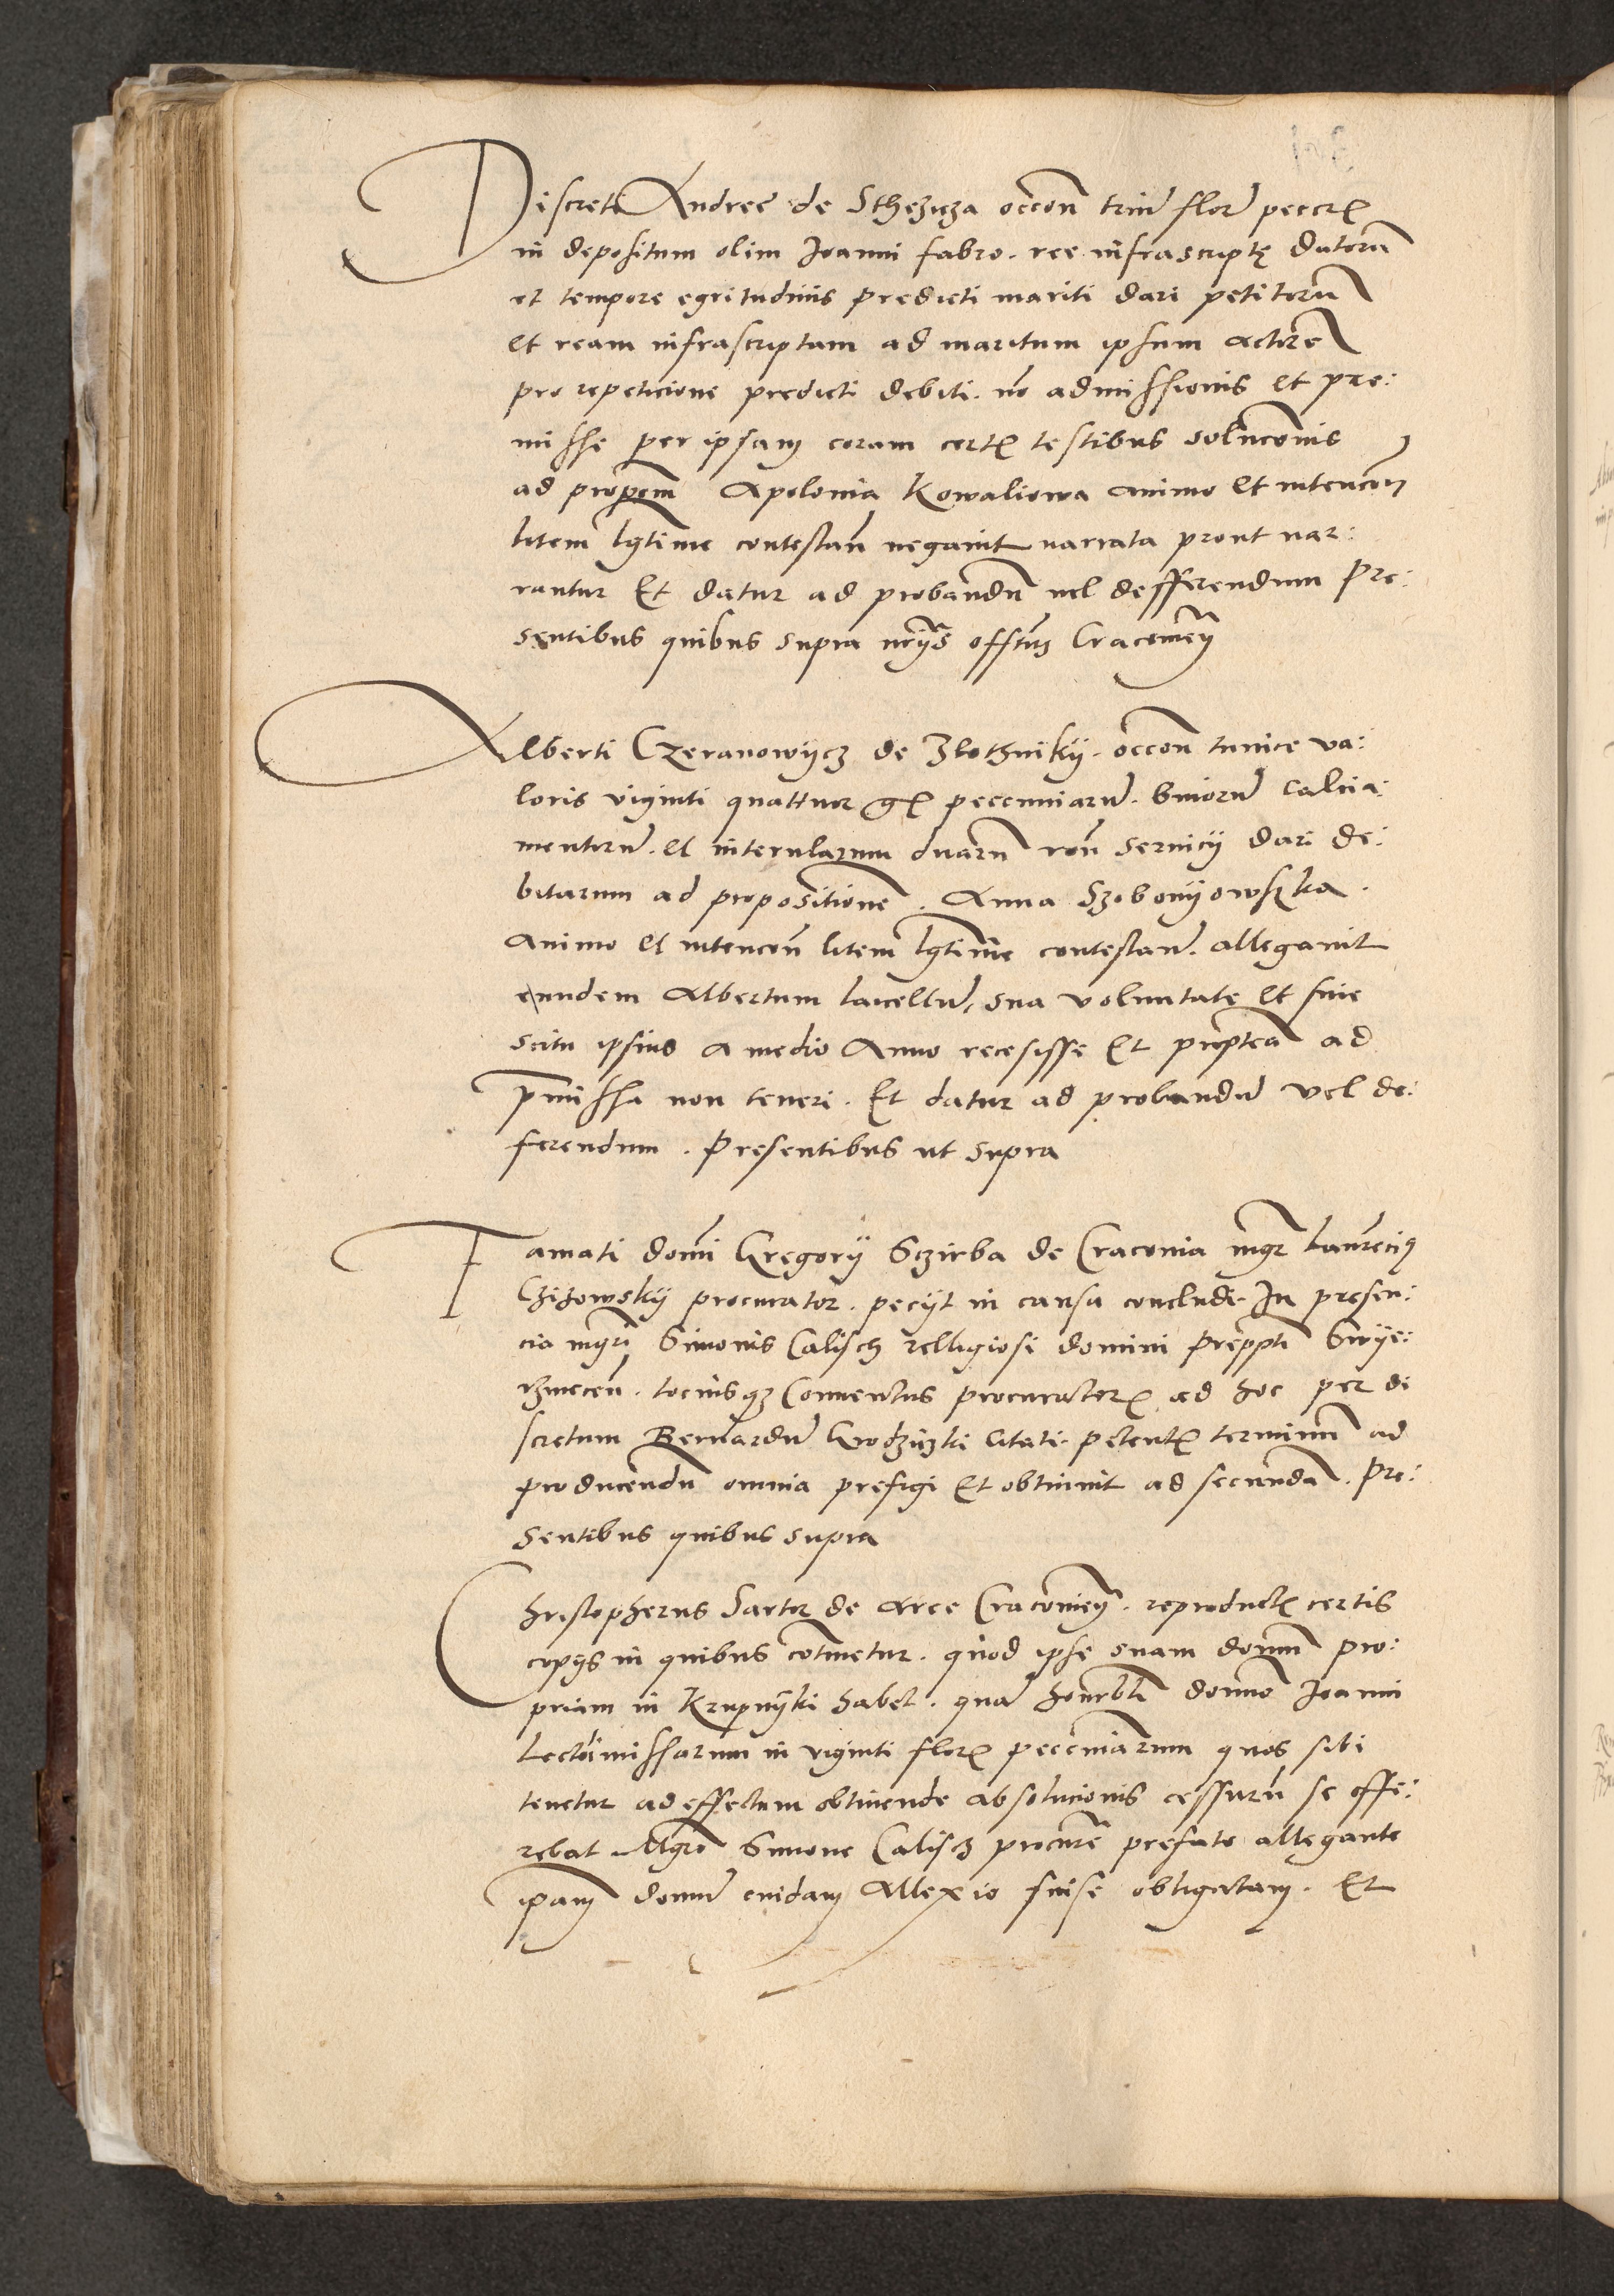 Discreti Andree de Sthezicza occoñ triũ florꝭ peccꝭ
in depositum olim Joanni fabro. ree infrascripte datorũ
et tempore egritudinis predicti mariti dari petitorũ
et ream infrascriptam ad maritum ipsum actorẽ
pro repeticione predicti debiti. nõ admissionis et pre:
misse per ipsam coram certꝭ testibus solucõnis
ad propoẽm Apolonia Kowaliowa animo et intencoñ
litem lgtime contestañ negavit narrata prout nar:
rantur Et datur ad probandũ vel defferendum Pre:
sentibus quibus supra nrijs offtus Cracovieñ
Alberti Czeranowycz de Zlothniky. occoñ tunice va:
loris viginti quattuor gꝭ pecuniarũ. binorũ calcia:
mentorũ. et interularum duarũ roñ servicij dari de:
bitarum ad propositionẽ. Anna Szobonyowska.
Animo et intencoñ litem lgtime contestañ. allegavit
eundem Albertum laicellũ, sua voluntate et sine
scitu ipsius a medio Anno recesisse Et propterea ad
pmissa non teneri. Et datur ad probandũ vel de:
ferendum. Presentibus ut supra
Famati domĩ Gregorij Sczirba de Cracovia mgr̃ Laurẽciꝰ
Chizowsky procurator. pecijt in causa concludi. In presen:
cia mgr̃i Simonis Calisch relligiosi domini prepp̃ti Swye:
rzinecen̄. tociusqꝫ Conventus procuratorꝭ ad hoc per di
scretum Bernardũ Grodziczki citati. petentꝭ terminũ ad
producendũ omnia prefigi Et obtinuit ad secundã. Pre:
sentibus quibus supra
Christopherus Sartor de arce Cracovieñ. reproductꝭ certis
copijs in quibus cõtinetur. quod ipse suam domũ pro:
priam in Krupnyki habet. quã honorabli domno Joanni
Lectamissarum in viginti florꝭ pecuniarum quos sibi
tenetur ad effectum obtinende absolucionis cessurũ se offe:
rebat Mgro Simone Calisch procurẽ prefato allegante
ipam domũ cuidam Allexio fuise obligatam. Et